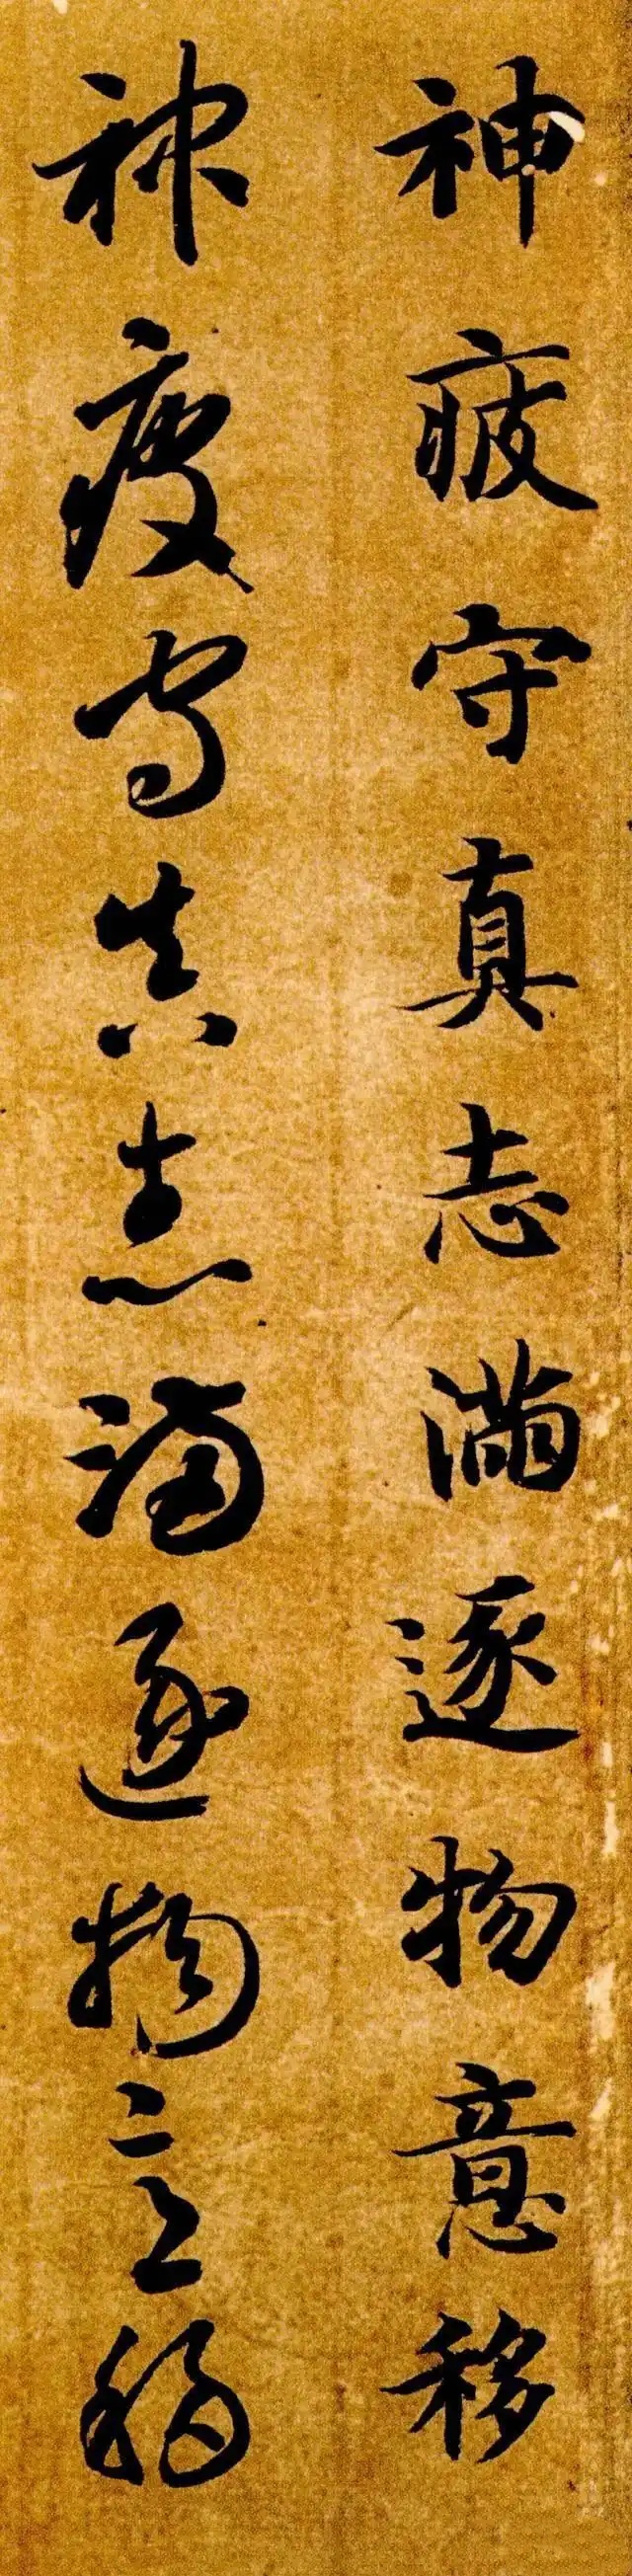 神疲守真志满逐物意移
神疲守真志满逐物意移